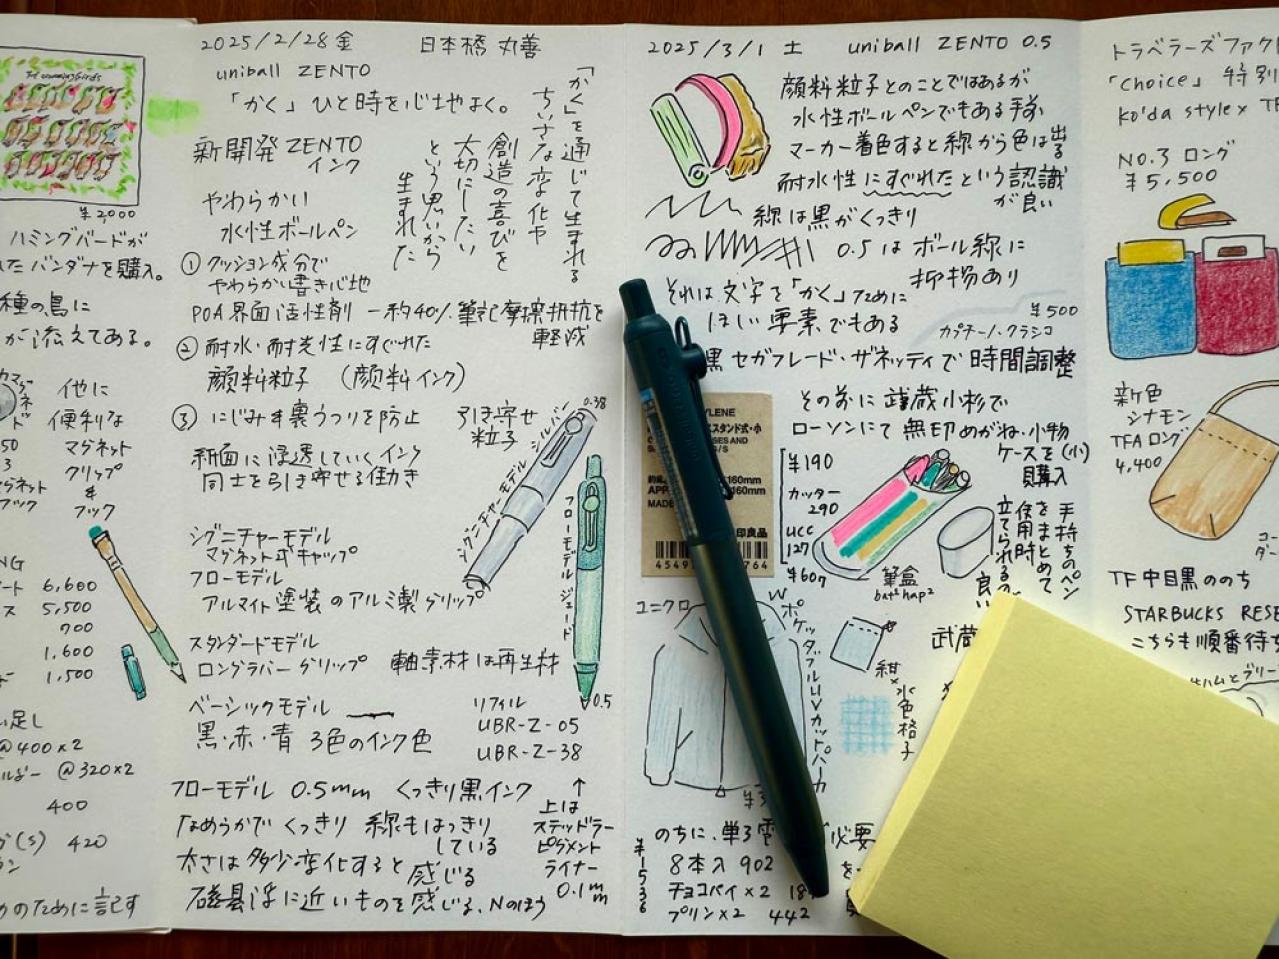 The Hummingbirds
¥2,000
ハミングバードが
たバンダナを購入。
種の鳥に
が添えてある。
他に
便利な
マグネット
クリップ
&
フック
6,600
5,500
700
1,600
1,500
い足し
@400×2
@320×2
400
(S) 420
のために記す
2025/2/28金 日本橋 丸善
uniball ZENTO
「かく」ひと時を心地よく。
新開発 ZENTO
インク
やわらかい
水性ボールペン
「かく」を通じて生まれる
ちいさな変化や
創造の喜びを
大切にしたい
という思いから
生まれた
①クッション成分で
やわらかい書き心地
POA界面活性剤 ー約40%筆記摩擦抵抗を
軽減
②耐水・耐光性にすぐれた
顔料粒子 (顔料インク)
③にじみす裏うつりを防止 引き寄せ
粒子
紙面に浸透していくインク
同士を引き寄せる働き
0.38
シグニチャーモデル シルバー
フローモデル ジェード
0.5
シグニチャーモデル
マグネット式キャップ
フローモデル
アルマイト塗装のアルミ製グリップ
スタンダードモデル
ロングラバーグリップ 軸素材は再生材
ベーシックモデル
黒・赤・青 3色のインク色
リフィル
UBR-Z-05
UBR-Z-38
フローモデル 0.5mm くっきり黒インク
なめらかで くっきり 線もはっきり
している
太さは多少変化すると感じる
に近いものを感じる、Nのほう
↑
上は
ステッドラー
ピグメント
ライナー
0.1mm
2025/3/1 土 uniball ZENTO 0.5
顔料粒子とのことではあるが
水性ボールペンでもある手前
マーカー着色すると線から色は出る
耐水性にすぐれたという認識
が良い
線は黒がくっきり
0.5はボール線に
抑揚あり
それは文字を「かく」ために
ほしい要素でもある
¥500
カプチーノ・クラシコ
黒 セガフレード・ザネッティで時間調整
そのおに武蔵小杉で
ローソンにて無印めがね・小物
ケースを(小)
購入
YLENE
スタンド式・小
SES AND
S/S
160mm
160mm
MADE
印良品
4549
764
¥190
カッター
290
UCC
127
¥607
筆盒
bat² hap²
手持ちのペン
をまとめて
使用時
立てられるの
良い
ユニクロ
W
ポケッタブルUVカットパーカ
紺×水色格子
武蔵
のちに、単3電 必要
8本入 902 を
チョコパイ×2
プリン×2 442
¥1536
トラベラーズファクト
「Choice」特別
ko'da style × TF
NO.3 ロング
¥5,500
新色
シナモン
TFAロング
4,400
TF中目黒ののち
STARBUCKS RESE
こちらも順番待ち
ハムとブリー